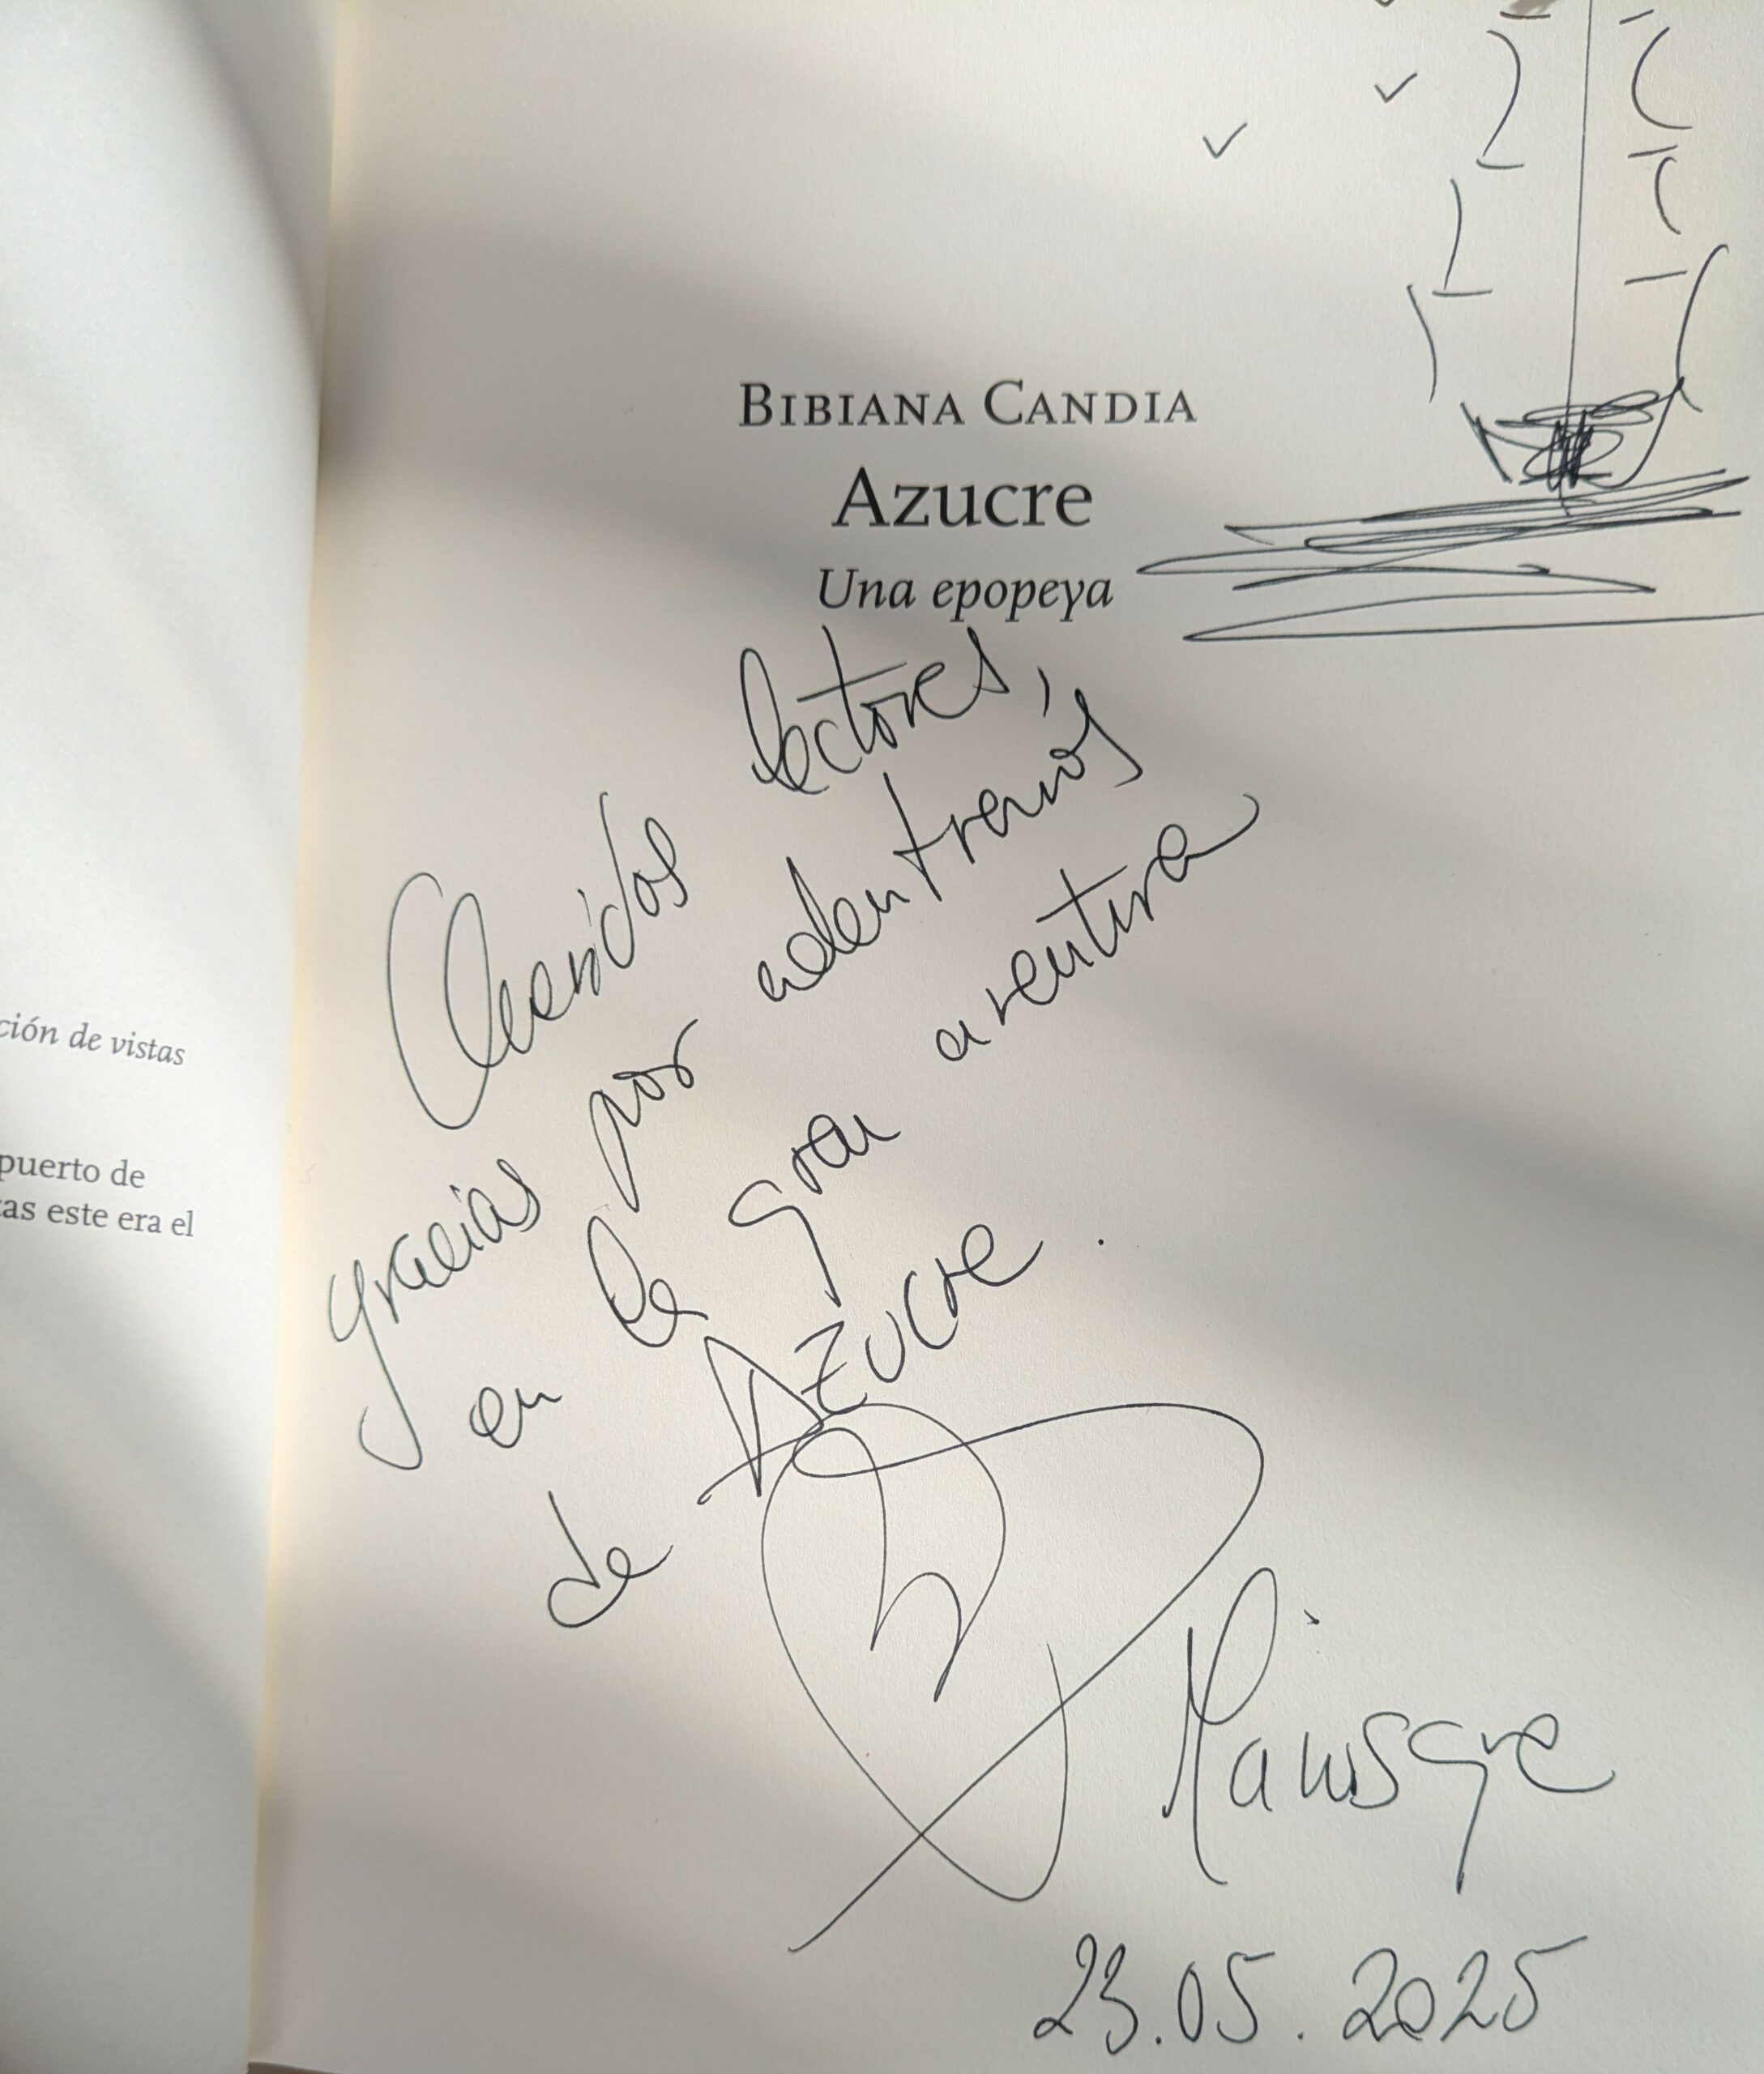 ción de vistas
puerto de
as este era el
BIBIANA CANDIA
Azucre
Una epopeya
Queridos lectores,
gracias por adentraros
en la gran aventura
de AZUCRE.
23.05.2025